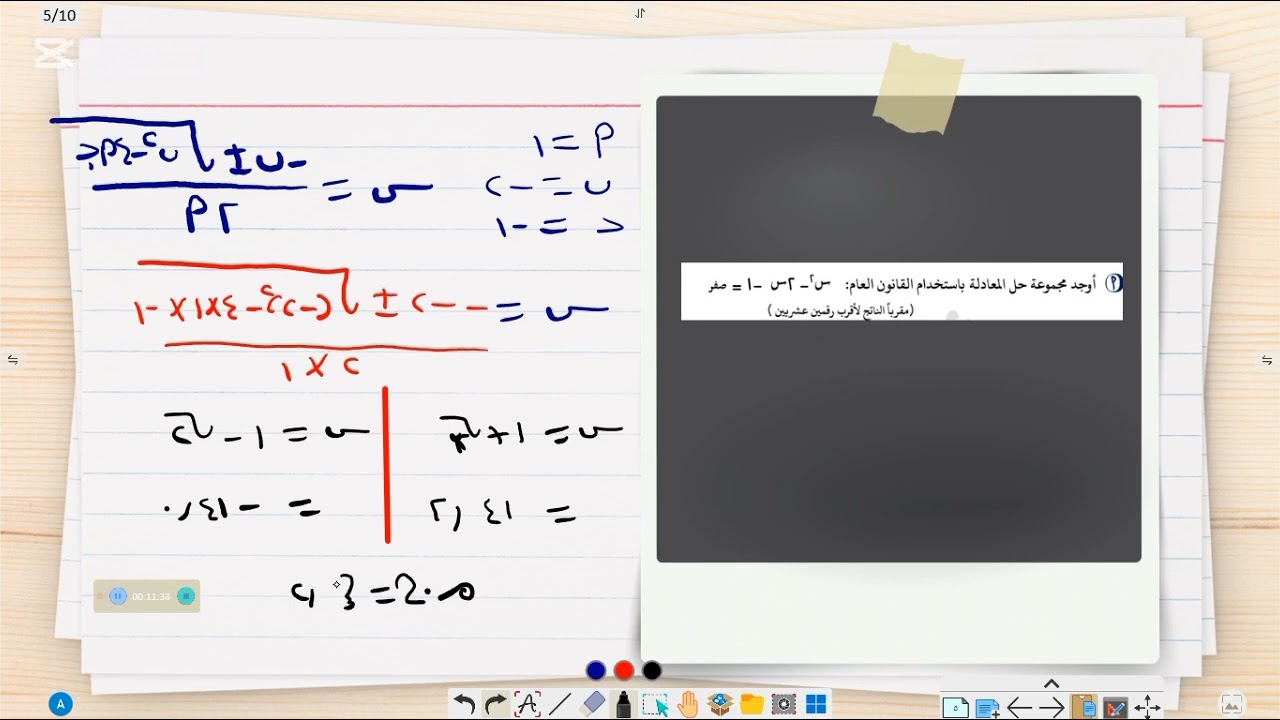 5/10
أ = ١
ب = -٢
ج = -١
س = -ب ± √ب٢-٤أج / ٢أ
س = --٢ ± √(-٢)٢-٤×١×-١
٢ × ١
س = ١+√٢
= ٢,٤١
س = ١-√٢
= -٠,٤١
م.ح = { ٢,
٢ أوجد مجموعة حل المعادلة باستخدام القانون العام: س٢- ٢س -١ = صفر
(مقرباً الناتج لأقرب رقمين عشريين )
00:11:38
A